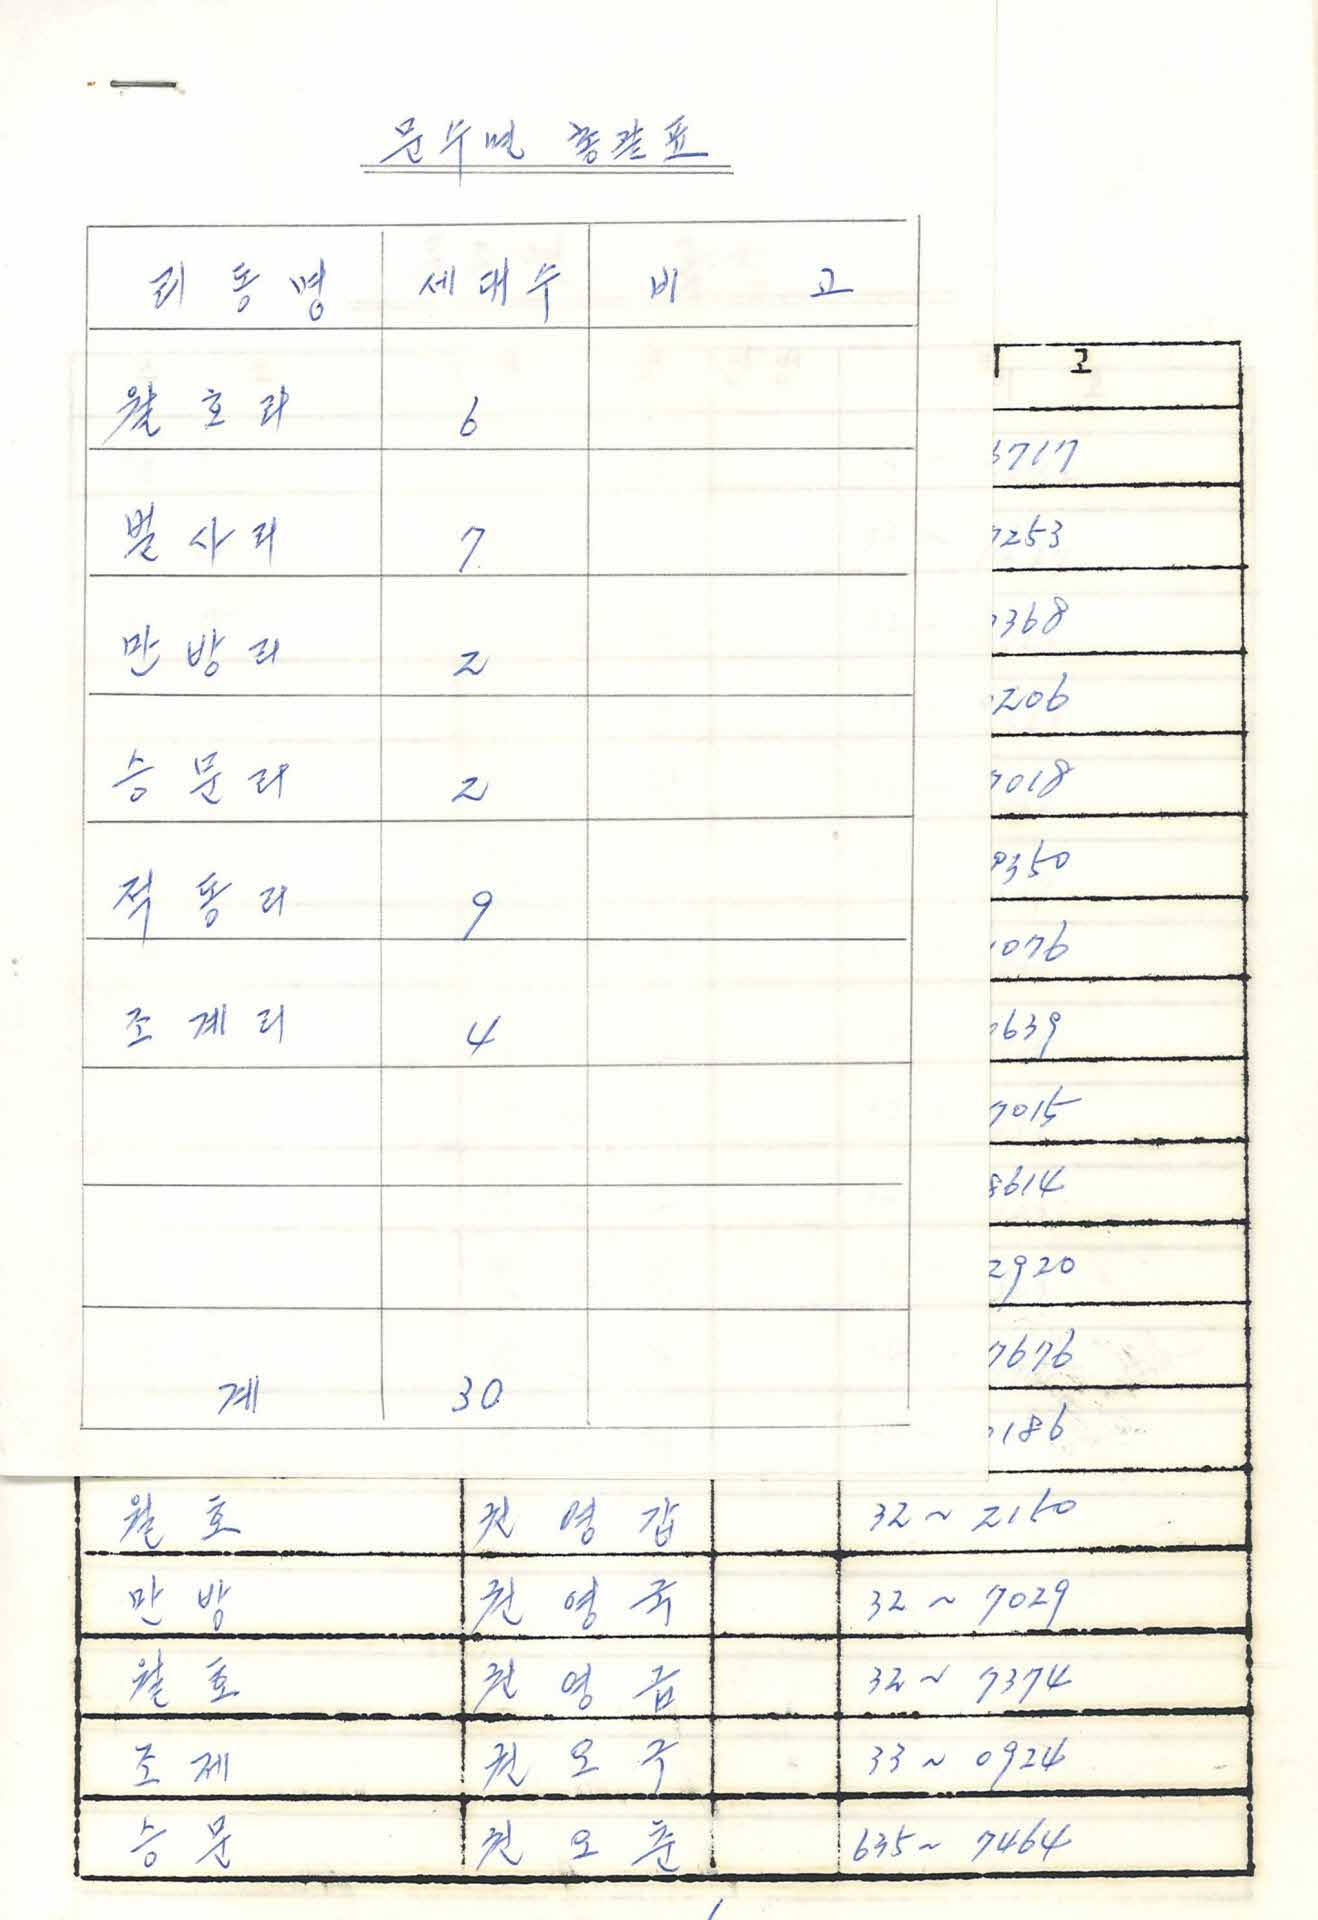 문수면 총괄표
리동명 세대수 비 고
월호리 6
벌사리 7
만방리 2
승문리 2
적동리 9
조제리 4
계 30
고
3717
7253
0368
0206
7018
0350
1076
0639
7015
8614
2920
7676
0186
월호 권영갑 32~2150
만방 권영국 32~7029
월호 권영금 32~7374
조제 권오국 33~0924
승문 권오춘 635~7464